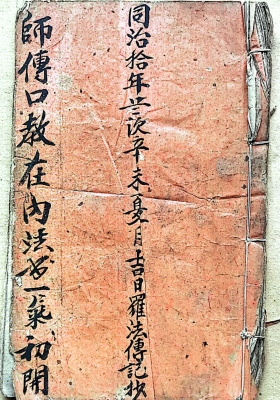 同治拾年歲次辛未夏月吉日羅法傳記抄
師傳口教在內法一氣初開